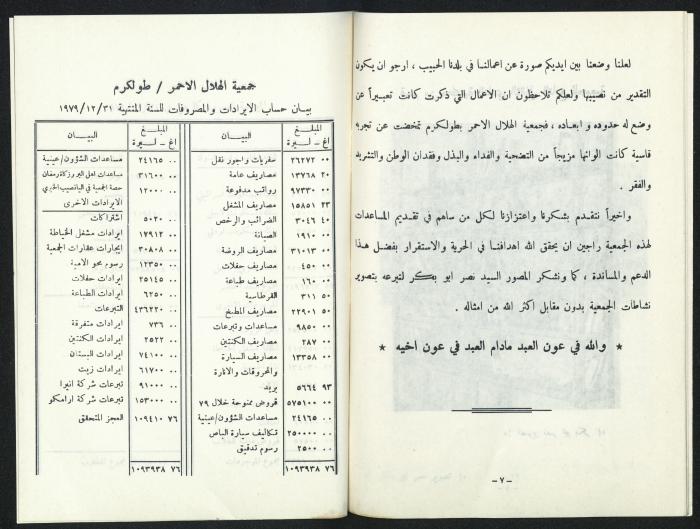 لعلنا وضعنا بين ايديكم صورة عن اعمالنا في بلدنا الحبيب ، ارجو ان يكون
التقدير من نصيبها ولعلكم تلاحظون ان الاعمال التي ذكرت كانت تعبيراً عن
وضع له حدوده وابعاده ، فجمعية الهلال الاحمر بطولكرم تمخضت عن تجربة
قاسية كانت الوانها مزيجاً من التضحية والفداء والبذل وفقدان الوطن والتشريد
والفقر .
واخيراً نتقدم بشكرنا واعتزازنا لكل من ساهم في تقديم المساعدات
لهذه الجمعية راجين ان يحقق الله اهدافنا في الحرية والاستقرار بفضل هذا
الدعم والمساندة ، كما ونشكر المصور السيد نصر ابو بكر لتبرعه بتصوير
نشاطات الجمعية بدون مقابل اكثر الله من امثاله .
★ والله في عون العبد مادام العبد في عون اخيه ★
-٧-
جمعية الهلال الاحمر / طولكرم
بيان حساب الايرادات والمصروفات للسنة المنتهية ١٩٧٩/١٢/٣١
المبلغ
اغ - ليرة
البيان
٠٠ ٢٦٢٧٢ سفريات واجور نقل
٢٠ ١٣٧٦٨ مصاريف عامة
٠٠ ٩٧٣٣٠ رواتب مدفوعة
٢٣ ١٥٨٥١ مصاريف المشغل
٤٠ ٣٠٤٦ الضرائب والرخص
٠٠ ١٩١٠ الصيانة
٠٠ ٣١٠١٣ مصاريف الروضة
٠٠ ٤٥٠ مصاريف حفلات
٠٠ ١٦٠ مصاريف طباعة
٥٠ ٣١١ القرطاسية
٥٠ ٢٢٩٠١ مصاريف المطبخ
٠٠ ٩٨٥٠ مساعدات وتبرعات
٠٠ ٢٨٧ مصاريف الكنتين
٠٠ ١٣٣٥٨ مصاريف السيارة
والمحروقات والانارة
٩٣ ٥٦٦٤ بريد
٠٠ ٥٧٥١٠٠ قروض ممنوحة خلال ٧٩
٠٠ ٢٤١٦٥ مساعدات الشؤون/عينية
٠٠ ٢٥٠٠٠٠ تكاليف سيارة الباص
٠٠ ٢٥٠٠ رسوم تدقيق
٧٦ ١٠٩٣٩٣٨
المبلغ
اغ - ليرة
البيان
٠٠ ٢٤١٦٥ مساعدات الشؤون/عينية
٠٠ ٣١٦٠٠ مساعدات اهل الخير وزكاة رمضان
٠٠ ١٢٠٠٠ حصة الجمعية في اليانصيب الخيري
الايرادات الاخرى
٠٠ ٥٠٢٠ اشتراكات
٠٠ ١٧٩١٢ ايرادات مشغل الخياطة
٠٠ ٣٠٨٠٨ ايجارات عقارات الجمعية
٠٠ ١٢٣٥٠ رسوم محو الامية
٠٠ ٢٥١٤٥ ايرادات حفلات
٠٠ ٦٢٥٠ ايرادات الطباعة
٠٠ ٤٣٦٢٢٠ التبرعات
٠٠ ٧٣٦ ايرادات متفرقة
٠٠ ٢٥٢٢ ايرادات الكنتين
٠٠ ٧٤١٠٠ ايرادات البستان
٠٠ ٦١٧٠٠ ايرادات زيت
٠٠ ٩١٠٠٠ تبرعات شركة انيرا
٠٠ ١٥٣٠٠٠ تبرعات شركة ارامكو
٧٦ ١٠٩٤١٠ العجز المتحقق
٧٦ ١٠٩٣٩٣٨